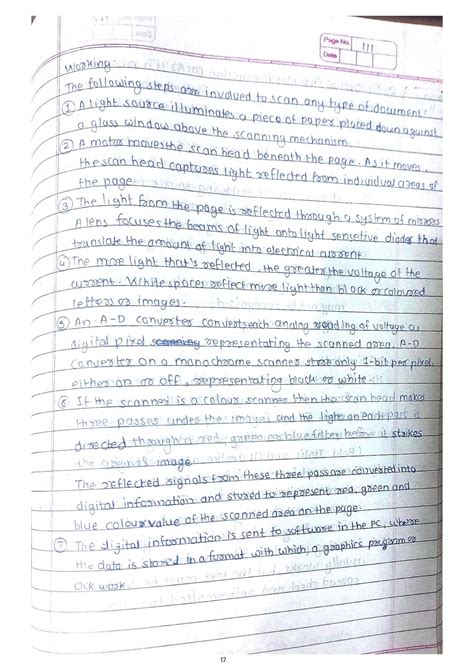 Page No. 111
Date
Working:
The following steps are involved to scan any type of document:
① A light source illuminates a piece of paper placed down against
a glass window above the scanning mechanism.
② A motor moves the scan head beneath the page. As it moves,
the scan head captures light reflected from individual areas of
the page.
③ The light from the page is reflected through a system of mirrors
A lens focuses the beams of light onto light sensetive diodes that
translate the amount of light into electrical current.
④ The more light that's reflected, the greater the voltage of the
current. White spaces reflect more light than black or coloured
letters or images.
⑤ An A-D converter converts each analog reading of voltage as
digital pixel representating the scanned area. A-D
converter on a monochrome scanner store only 1-bit per pixel.
either on or off, representating black or white.
⑥ If the scanner is a colour scanner then the scan head makes
three passes under the image and the light on each pass is
directed through a red, green or blue filter before it strikes
the original image.
The reflected signals from these three pass are converted into
digital information and stored to represent red, green and
blue colour value of the scanned area on the page.
⑦ The digital information is sent to software in the PC, where
the data is stored in a format with which a graphics program or
OCR work.
17